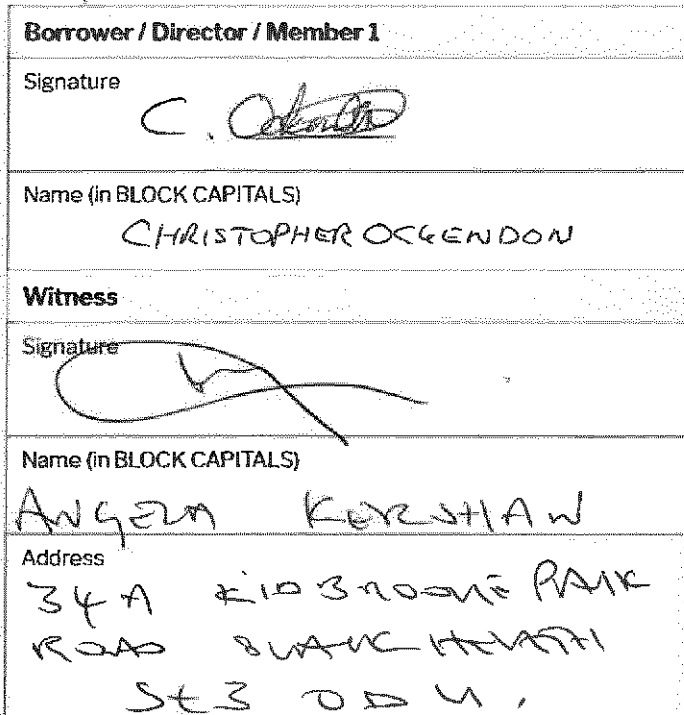 Borrower / Director / Member 1
Signature
C.
Name (in BLOCK CAPITALS)
CHRISTOPHER OCGENDON
Witness
Signature
Name (in BLOCK CAPITALS)
ANGELA KERSHAW
Address
34A KIDBROOKE PARK
ROAD BLACKHEATH
SE3 0DU.